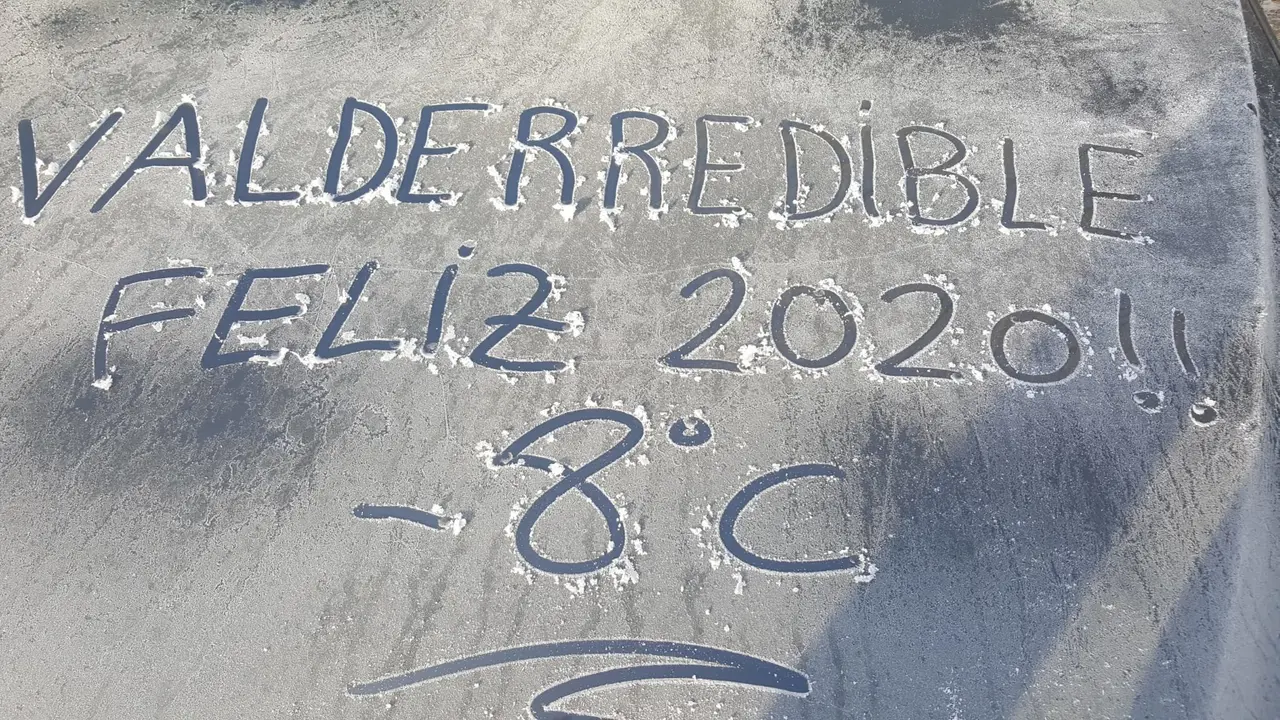 VALDERREDIBLE
FELIZ 2020!!
-8°C